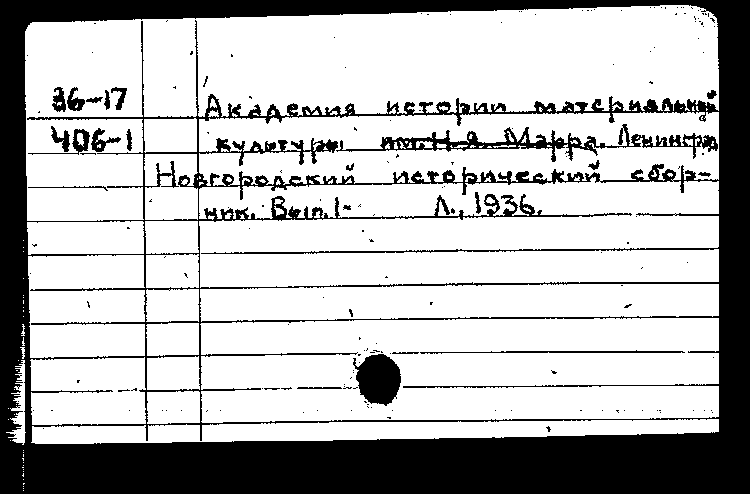 36-17 Академия истории материальной
406-1 культуры им. Н. Я. Марра. Ленинград
Новгородский исторический сбор-
ник. Вып. 1- Л., 1936.